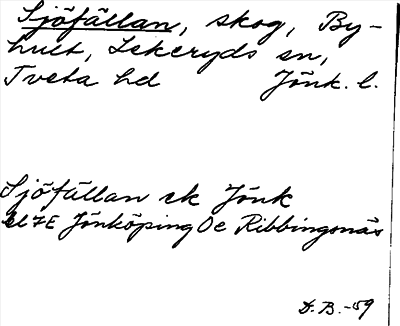 Sjöfällan, skog, By-
hult, Lekeryds sn,
Tveta hd Jönk. l.
Sjöfällan ek Jönk
bl 7E Jönköping Öe Ribbingsnäs
D.B.-59